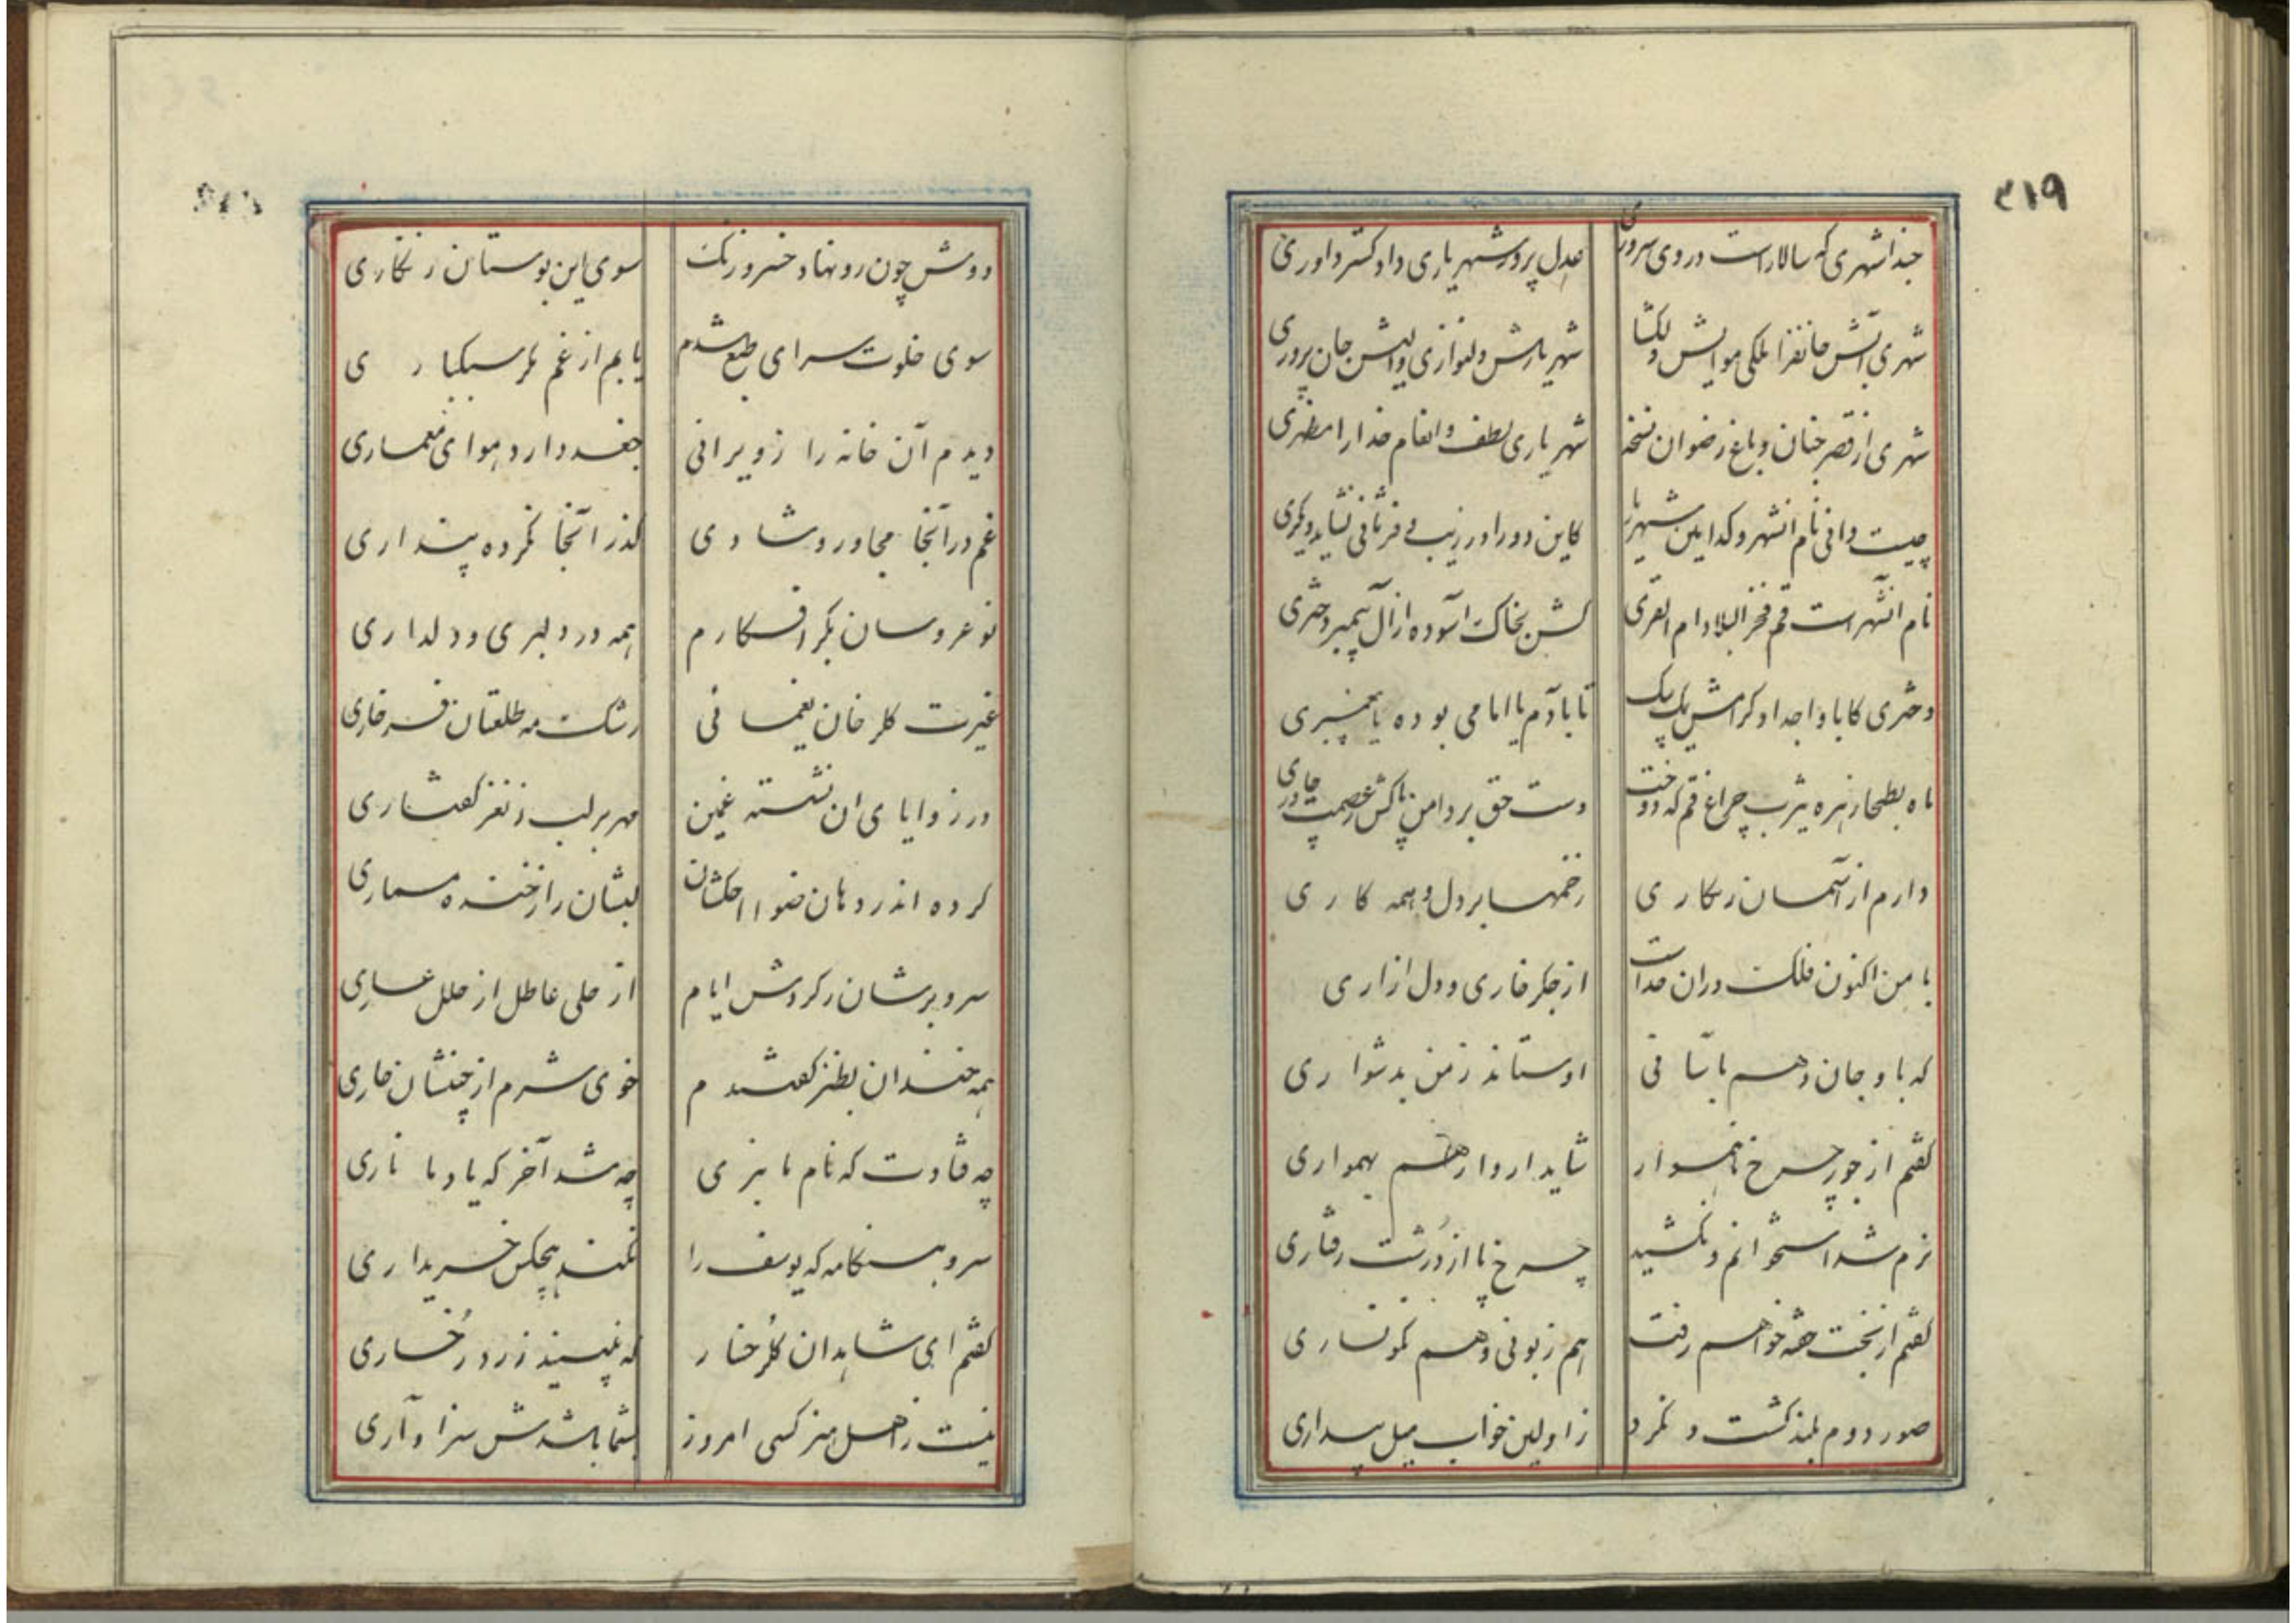 ۳۱۹
حبذا شهری که سالار است در وی سروری
عدل پرور شهریاری داد کستر داوری
شهری آبش جانفزا ملکی هوایش دلکشا
شهریارش دلنوازی والیش جان پروری
شهری از قصر جنان و باغ رضوان نسخه
شهریاری لطف و انعام خدا را مظهری
چیست دانی نام انشهر و کدامین شهریار
کاین دو را در زیب و فر ثانی نشاید دیکری
نام انشهر است قم فخر البلاد ام القری
کش بخاک آسوده از آل پیمبر دختری
دختری کاباء و اجداد کرامش یک بیک
تا بآدم یا امامی بوده یا پیغمبری
ماه بطحا زهره یثرب چراغ قم که دوخت
دست حق بر دامن پاکش ز عصمت چادری
دارم از آسمان زنکاری
زخمها بر دل و همه کاری
با من اکنون فلک در ان حد است
از جکر خاری و دل ازاری
که باو جان دهم باسانی
او ستاند ز من بدشواری
کفتم از جور چرخ ناهموار
شاید ار وارهم بهمواری
نرم شد استخوانم و نکشید
چرخ پا از دُرشت رفتاری
کفتم از بخت خفته خواهم رفت
هم زبونی و هم نکونساری
صور دوم بلند کشت و نکرد
ز اولین خواب میل بیداری
دوش چون رو نهاد خسرو زنک
سوی این بوستان زنکاری
سوی خلوت سرای طبع شدم
یابم از غم مکر سبکباری
دیدم آن خانه را ز ویرانی
جغد دارد هوای معماری
غم در آنجا مجاور و شادی
کذر آنجا نکرده پنداری
نو عروسان بکر افکارم
همه در دلبری و دلداری
غیرت کلرخان یغمائی
رشک مه طلعتان فرخاری
در زوایای ان نشسته غمین
مهر بر لب ز نغز کفتاری
کرده اندر دهان ضواحکشان
لبشان را ز خنده مسماری
سر و برشان ز کردش ایام
از حلی عاطل از حلل عاری
همه خندان بطنز کفتندم
خوی شرم از جبینشان جاری
چه فتادت که نام ما نبری
چه شد آخر که یاد ما ناری
سرد هنکامه که یوسف را
نکند هیچکس خریداری
کفتم ای شاهدان کلرخسار
که نبیند زرد رُخساری
نیست ز اهل هنر کسی امروز
بشما باشدش سزاواری